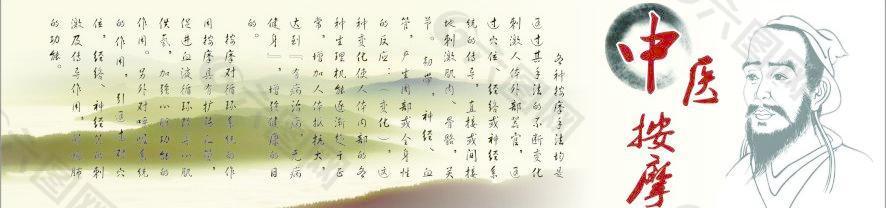 中医按摩
各种按摩手法均是
通过其手法的不断变化
刺激人体外部器官，通
过穴位、经络或神经系
统的传导，直接或间接
地刺激肌肉、骨骼、关
节、韧带、神经、血
管，产生局部或全身性
的反应：（变化），这
种变化使人体内部的各
种生理机能逐渐趋于正
常，增加人体抵抗力，
达到『有病治病，无病
健身』，增强健康的目
的。
按摩对循环系统的作
用按摩具有扩张血管，
促进血液循环改善心肌
供氧，加强心脏功能的
作用。另外对呼吸系统
的作用，引通过对穴
位、经络、神经等的刺
激及传导作用，
的功能。